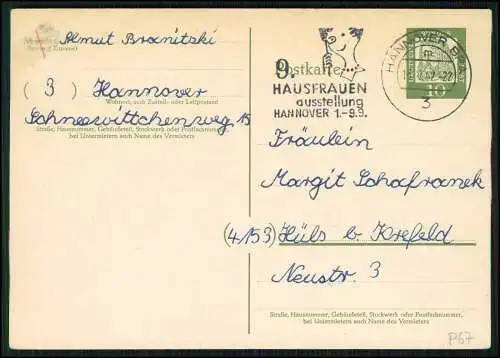 Almut Branitzki
(3) Hannover
Wohnort, auch Zustell- oder Leitpostamt
Schneewittchenweg 15
Straße, Hausnummer, Gebäudeteil, Stockwerk oder Postfachnummer,
bei Untermietern auch Name des Vermieters
Postkarte
9.
HAUSFRAUEN
ausstellung
HANNOVER 1.-9.9.
HANNOVER
3
10
Fräulein
Margit Schafranek
(4153) Hüls b. Krefeld
Neustr. 3
Straße, Hausnummer, Gebäudeteil, Stockwerk oder Postfachnummer,
bei Untermietern auch Name des Vermieters
P67